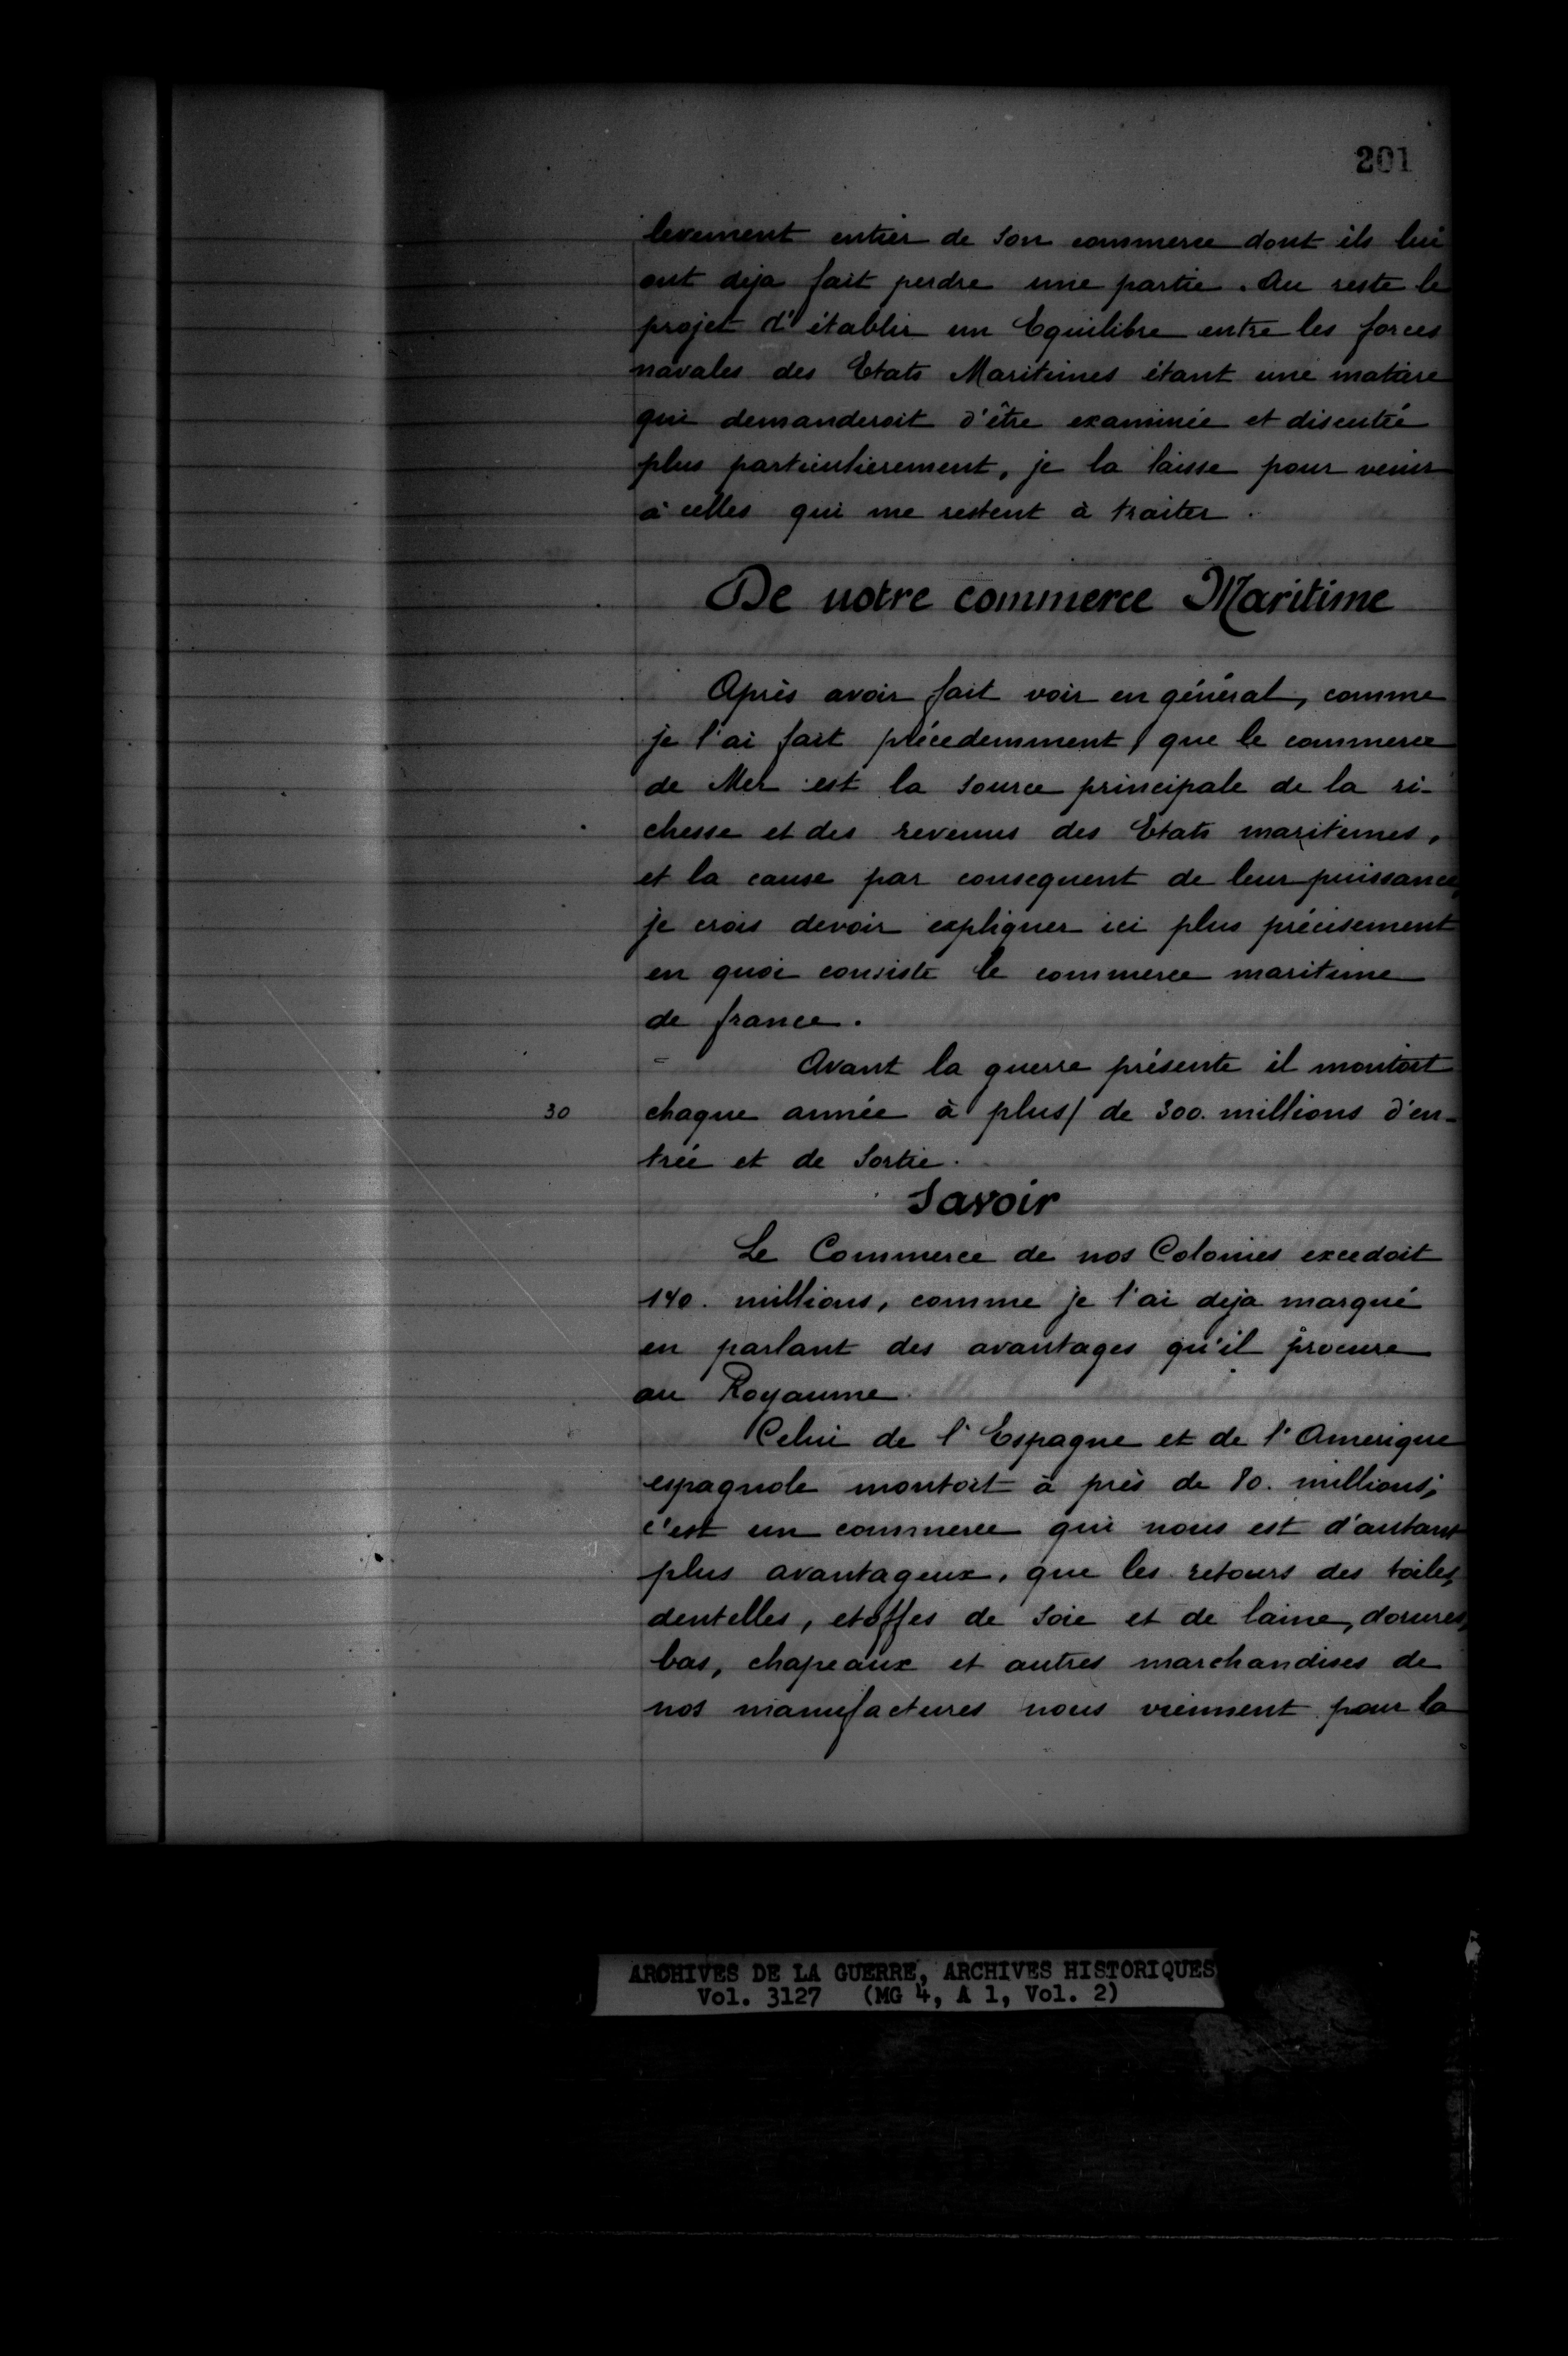 201
levement entier de son commerce dont ils lui
ont deja fait perdre une partie. Au reste le
projet d'établir un Equilibre entre les forces
navales des Etats Maritimes étant une matiere
qui demanderoit d'être examinée et discutée
plus particulierement, je la laisse pour venir
à celles qui me restent à traiter.
De notre commerce Maritime
Après avoir fait voir en général, comme
je l'ai fait précedemment, que le commerce
de Mer est la source principale de la ri-
chesse et des revenus des Etats maritimes,
et la cause par consequent de leur puissance,
je crois devoir expliquer ici plus précisement
en quoi consiste le commerce maritime
de france.
Avant la guerre présente il montoit
30 chaque année à plus/ de 300. millions d'en-
trée et de sortie.
Savoir
Le Commerce de nos Colonies excedoit
140. millions, comme je l'ai deja marqué
en parlant des avantages qu'il procure
au Royaume.
Celui de l'Espagne et de l'Amerique
espagnole montoit à près de 80. millions;
c'est un commerce qui nous est d'autant
plus avantageux, que les retours des toiles,
dentelles, etoffes de soie et de laine, dorures,
bas, chapeaux et autres marchandises de
nos manufactures nous viennent pour la
ARCHIVES DE LA GUERRE, ARCHIVES HISTORIQUES
Vol. 3127 (MG 4, A 1, Vol. 2)